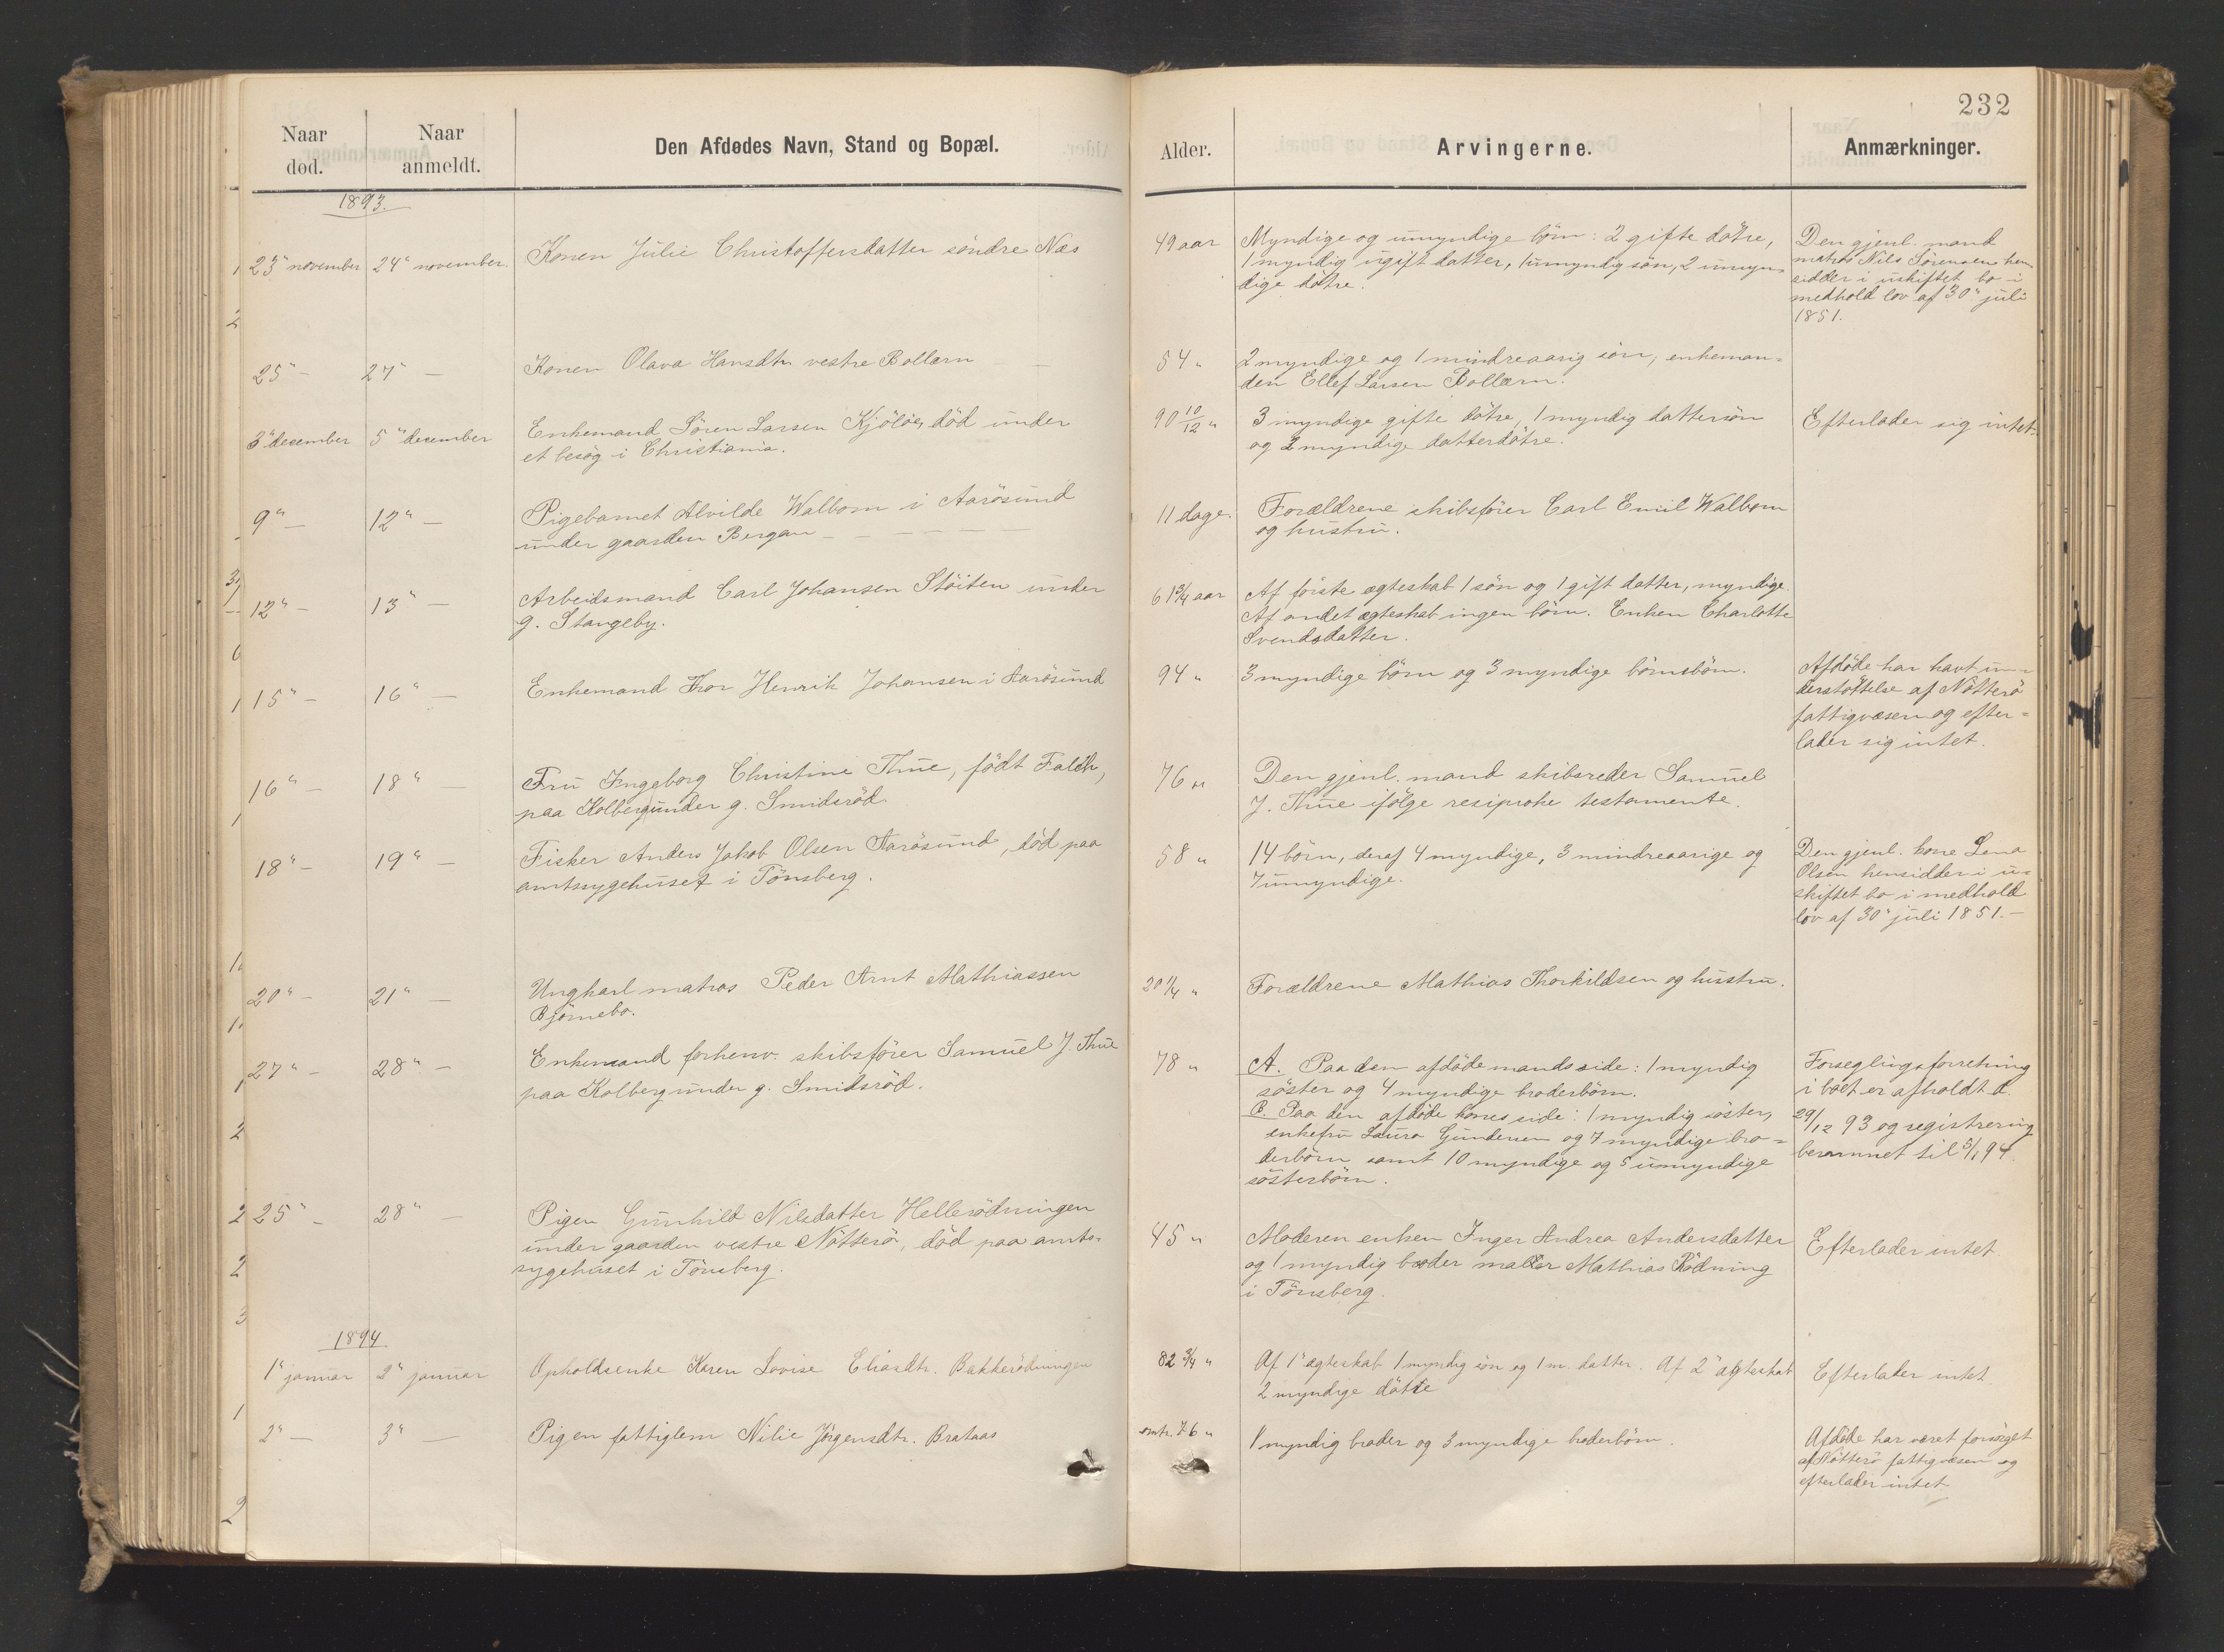 232
Naar død.
Naar anmeldt.
Den Afdødes Navn, Stand og Bopæl.
Alder.
Arvingerne.
Anmærkninger.
1893.
23" november 24" november.
Konen Julie Christoffersdatter söndre Næs
49 aar
Myndige og umyndige börn: 2 gifte dötre,
1 myndig ugift datter, 1 umyndig sön, 2 umyn-
dige dötre.
Den gjenl. mand
matros Nils Sörensen hen-
sidder i uskiftet bo i
medhold lov af 30" juli
1851.
25" — 27" —
Konen Olava Hansdtr. vestre Bollærn
54 "
2 myndige og 1 mindreaarig sön, enkeman-
den Ellef Larsen Bollærn.
3" december 5" december
Enkemand Sören Larsen Kjölö, död under
et besög i Christiania.
90 10/12 "
3 myndige gifte dötre, 1 myndig dattersön
og 2 myndige datterdötre.
Efterlader sig intet.
9" — 12" —
Pigebarnet Alvilde Walbom i Aarösund
under gaarden Bergan — — — —
11 dage.
Forældrene skibsförer Carl Emil Walbom
og hustru.
12" — 13" —
Arbeidsmand Carl Johansen Stöiten under
g. Stangeby.
61 3/4 aar
Af förste ægteskab 1 sön og 1 gift datter, myndige.
Af andet ægteskab ingen börn. Enken Charlotte
Svendsdatter.
15" — 16" —
Enkemand Thor Henrik Johansen i Aarösund
94 "
3 myndige börn og 3 myndige börnebörn.
Afdöde har havt un-
derstöttelse af Nötterö
fattigvæsen og efter-
lader sig intet.
16" — 18" —
Fru Ingeborg Christine Thue, födt Falch,
paa Kolberg under g. Smidsröd.
76 "
Den gjenl. mand skibsreder Samuel
J. Thue ifölge resiproke testamente.
18" — 19" —
Fisker Anders Jakob Olsen Aarösund, död paa
amtssygehuset i Tönsberg.
58 "
14 börn, deraf 4 myndige, 3 mindreaarige og
7 umyndige.
Den gjenl. kone Lena
Olsen hensidder i u-
skiftet bo i medhold
lov af 30" juli 1851. —
20" — 21" —
Ungkarl matros Peder Arnt Mathiassen
Björnebo.
20 1/4 "
Forældrene Mathias Thorkildsen og hustru.
27" — 28" —
Enkemand forhenv. skibsförer Samuel J. Thue
paa Kolberg under g. Smidsröd.
78 "
A. Paa den afdöde mands side: 1 myndig
söster og 4 myndige broderbörn.
B. Paa den afdöde kones side: 1 myndig söster,
enkefru Laura Gundersen og 7 myndige bro-
derbörn samt 10 myndige og 5 umyndige
sösterbörn.
Forseglingsforretning
i boet er afholdt d.
29/12 93 og registrering
berammet til 5/1 94.
25" — 28" —
Pigen Gunhild Nilsdatter Hellerödningen
under gaarden vestre Nötterö, död paa amts-
sygehuset i Tönsberg.
45 "
Moderen enken Inger Andrea Andersdatter
og 1 myndig broder maler Mathias Rödning
i Tönsberg.
Efterlader intet.
1894
1" januar 2" januar
Opholdsenke Karen Lovise Eliasdtr. Bakkerödningen
82 3/4 "
Af 1" ægteskab 1 myndig sön og 1 m. datter. Af 2" ægteskab
2 myndige dötre
Efterlader intet.
2" — 3" —
Pigen fattiglem Nilie Jörgensdtr. Brataas
omtr. 76 "
1 myndig broder og 3 myndige broderbörn.
Afdöde har været forsörget
af Nötterö fattigvæsen og
efterlader intet